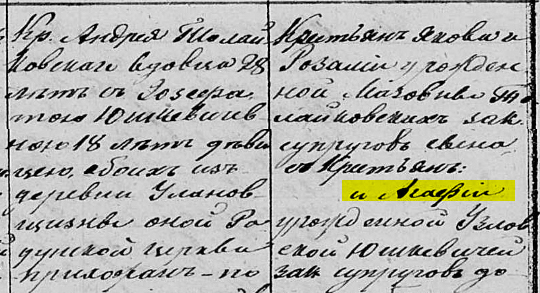 Кр. Андрея Толай
ковскаго вдовца 28
лѣтъ съ Іозефа
тою Юшкевичев
ною 18 лѣтъ дѣви
цею, обоихъ изъ
деревни Уланов
щизны оной Ра
дунской церкви
прихожанъ – по
Крестьянъ Якова и
Розаліи урожден
ной Мазовны То
лайковскихъ зак
супруговъ сына
съ Крестьян:
и Агафіи
урожденной Узлов
ской Юшкевичей
зак супруговъ до